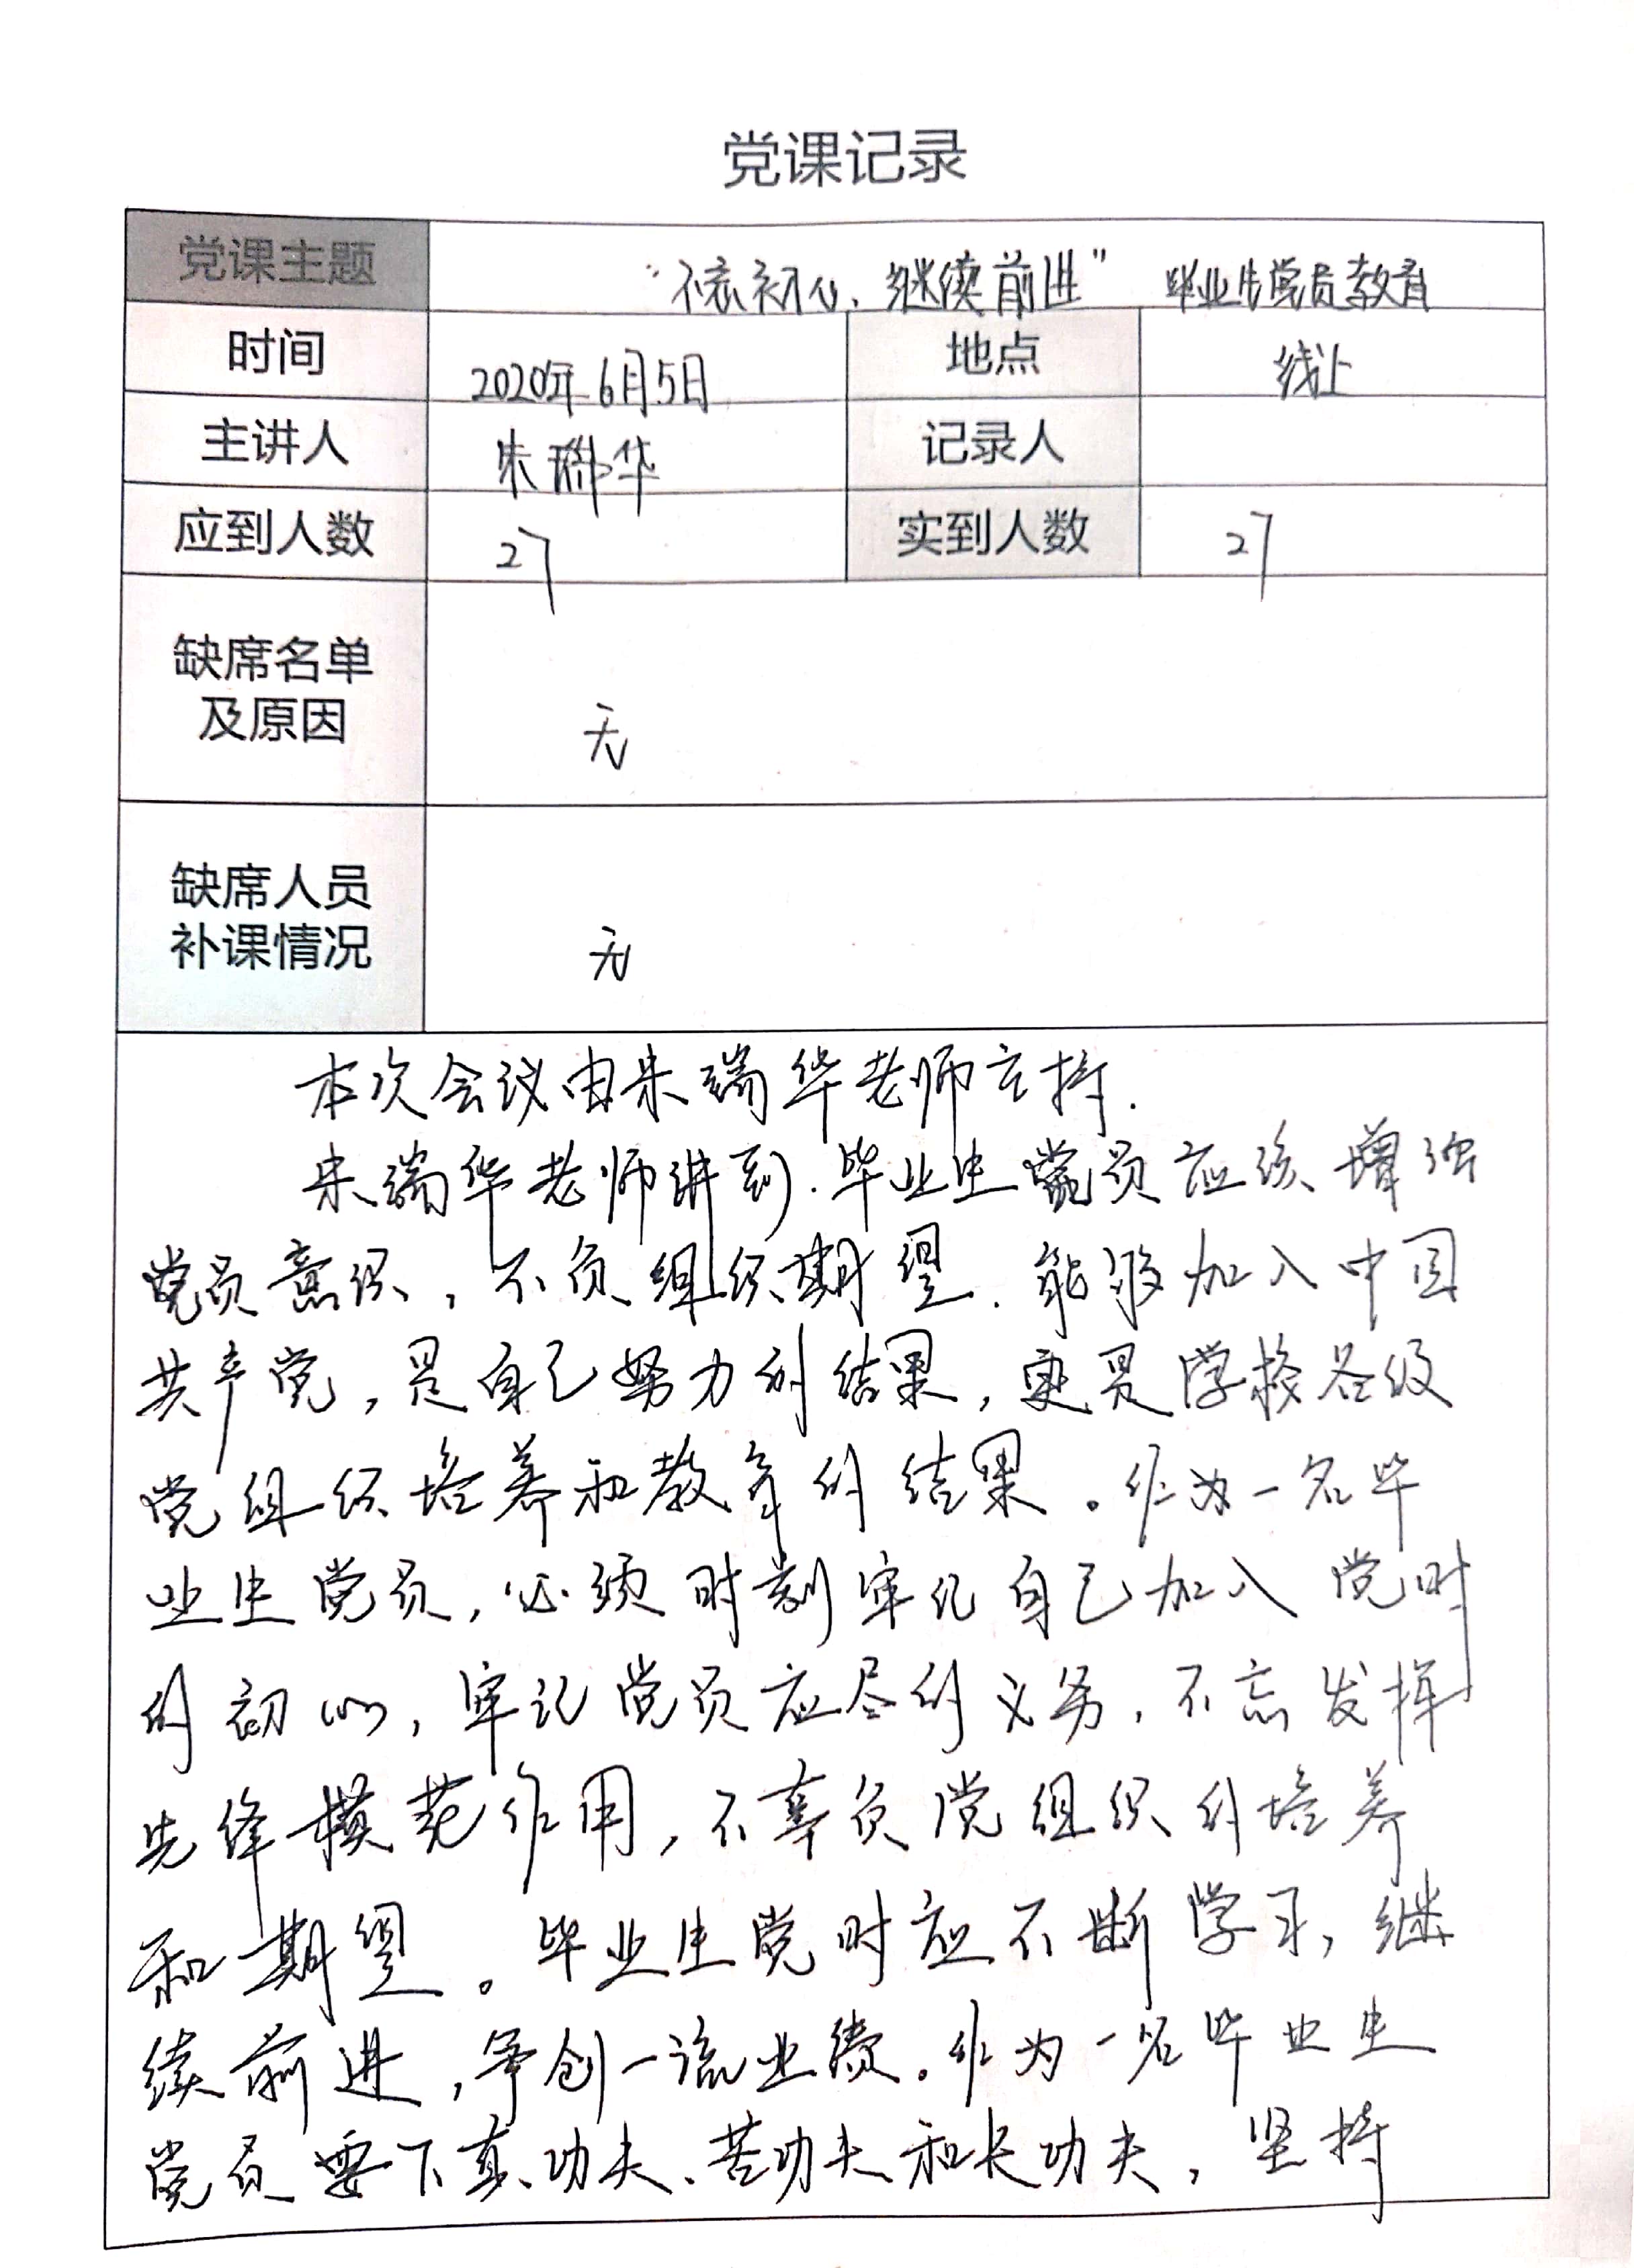 党课记录
党课主题 “不忘初心、继续前进” 毕业生党员教育
时间 2020年6月5日 地点 线上
主讲人 朱瑞华 记录人
应到人数 27 实到人数 27
缺席名单
及原因 无
缺席人员
补课情况 无
本次会议由朱瑞华老师主持.
朱瑞华老师讲到.毕业生党员应该增强
党员意识，不负组织期望.能够加入中国
共产党，是自己努力的结果，更是学校各级
党组织培养和教育的结果。作为一名毕
业生党员，必须时刻牢记自己加入党时
的初心，牢记党员应尽的义务，不忘发挥
先锋模范作用，不辜负党组织的培养
和期望。毕业生党时应不断学习，继
续前进，争创一流业绩。作为一名毕业生
党员要下真功夫、苦功夫和长功夫，坚持